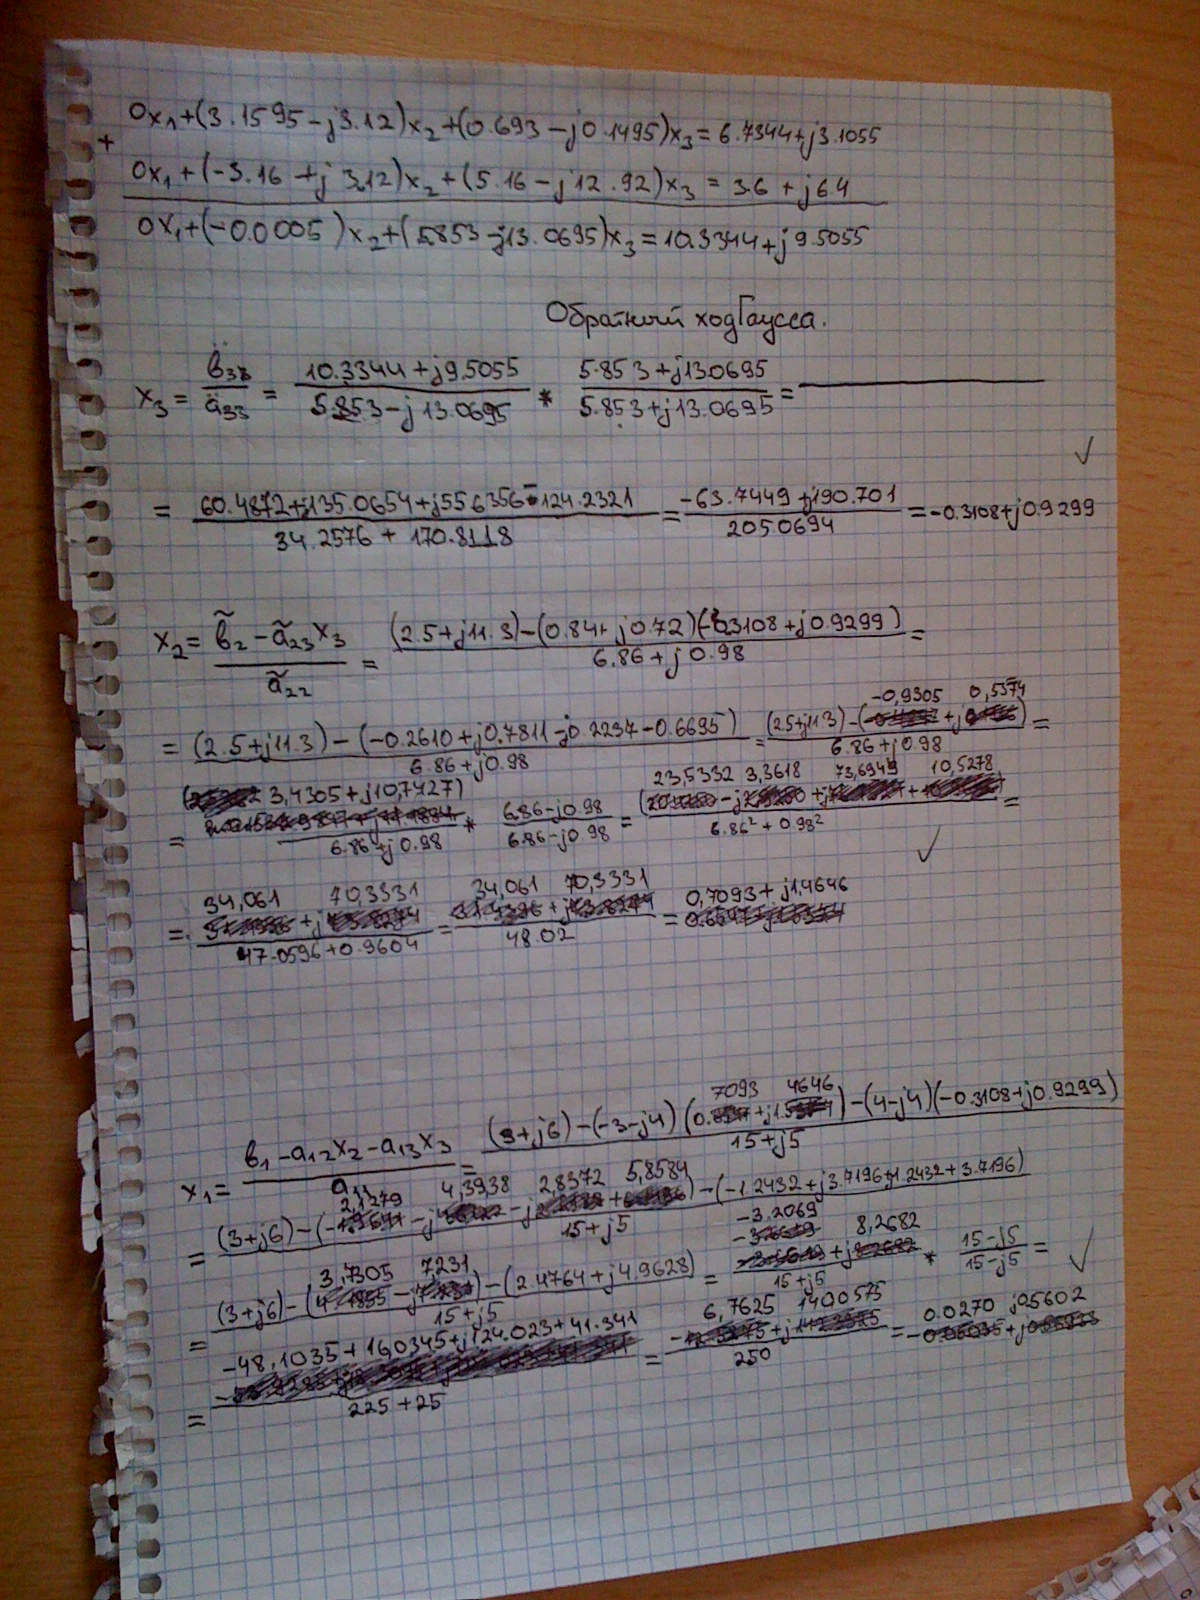 0x₁+(3.1595-j3.12)x₂+(0.693-j0.1495)x₃=6.7344+j3.1055
+
0x₁+(-3.16+j3.12)x₂+(5.16-j12.92)x₃=3.6+j6.4
0x₁+(-0.0005)x₂+(5.853-j13.0695)x₃=10.3344+j9.5055
Обратный ход Гаусса.
x₃ = b₃₃/a₃₃ = (10.3344+j9.5055)/(5.853-j13.0695) * (5.853+j13.0695)/(5.853+j13.0695) =
= (60.4872+j135.0654+j55.6356-124.2321)/(34.2576+170.8118) = (-63.7449+j190.701)/205.0694 = -0.3108+j0.9299
x₂ = (b̃₂-ã₂₃x₃)/ã₂₂ = ((2.5+j11.3)-(0.84+j0.72)(-0.3108+j0.9299))/(6.86+j0.98) =
= ((2.5+j11.3)-(-0.2610+j0.7811-j0.2237-0.6695))/(6.86+j0.98) = ((2.5+j11.3)-(-0,9305+j0,5574))/(6.86+j0.98) =
= (3,4305+j10,7427)/(6.86+j0.98) * (6.86-j0.98)/(6.86-j0.98) = (23,5332-j3,3618+j73,6949+10,5278)/(6.86²+0.98²) =
= (34,061+j70,3331)/(47.0596+0.9604) = (34,061+j70,3331)/48.02 = 0,7093+j1,4646
x₁ = (b₁-a₁₂x₂-a₁₃x₃)/a₁₁ = ((3+j6)-(-3-j4)(0.7093+j1.4646)-(4-j4)(-0.3108+j0.9299))/(15+j5)
= ((3+j6)-(-2,1279-j4,3938-j2,8372+5,8584)-(-1.2432+j3.7196+j1.2432+3.7196))/(15+j5)
= ((3+j6)-(3,7305-j7,231)-(2.4764+j4.9628))/(15+j5) = (-3.2069+j8,2682)/(15+j5) * (15-j5)/(15-j5) =
= (-48,1035+16,0345+j124.023+41.341)/(225+25) = (6,7625 140,0575)/250 = 0.0270 j0.5602